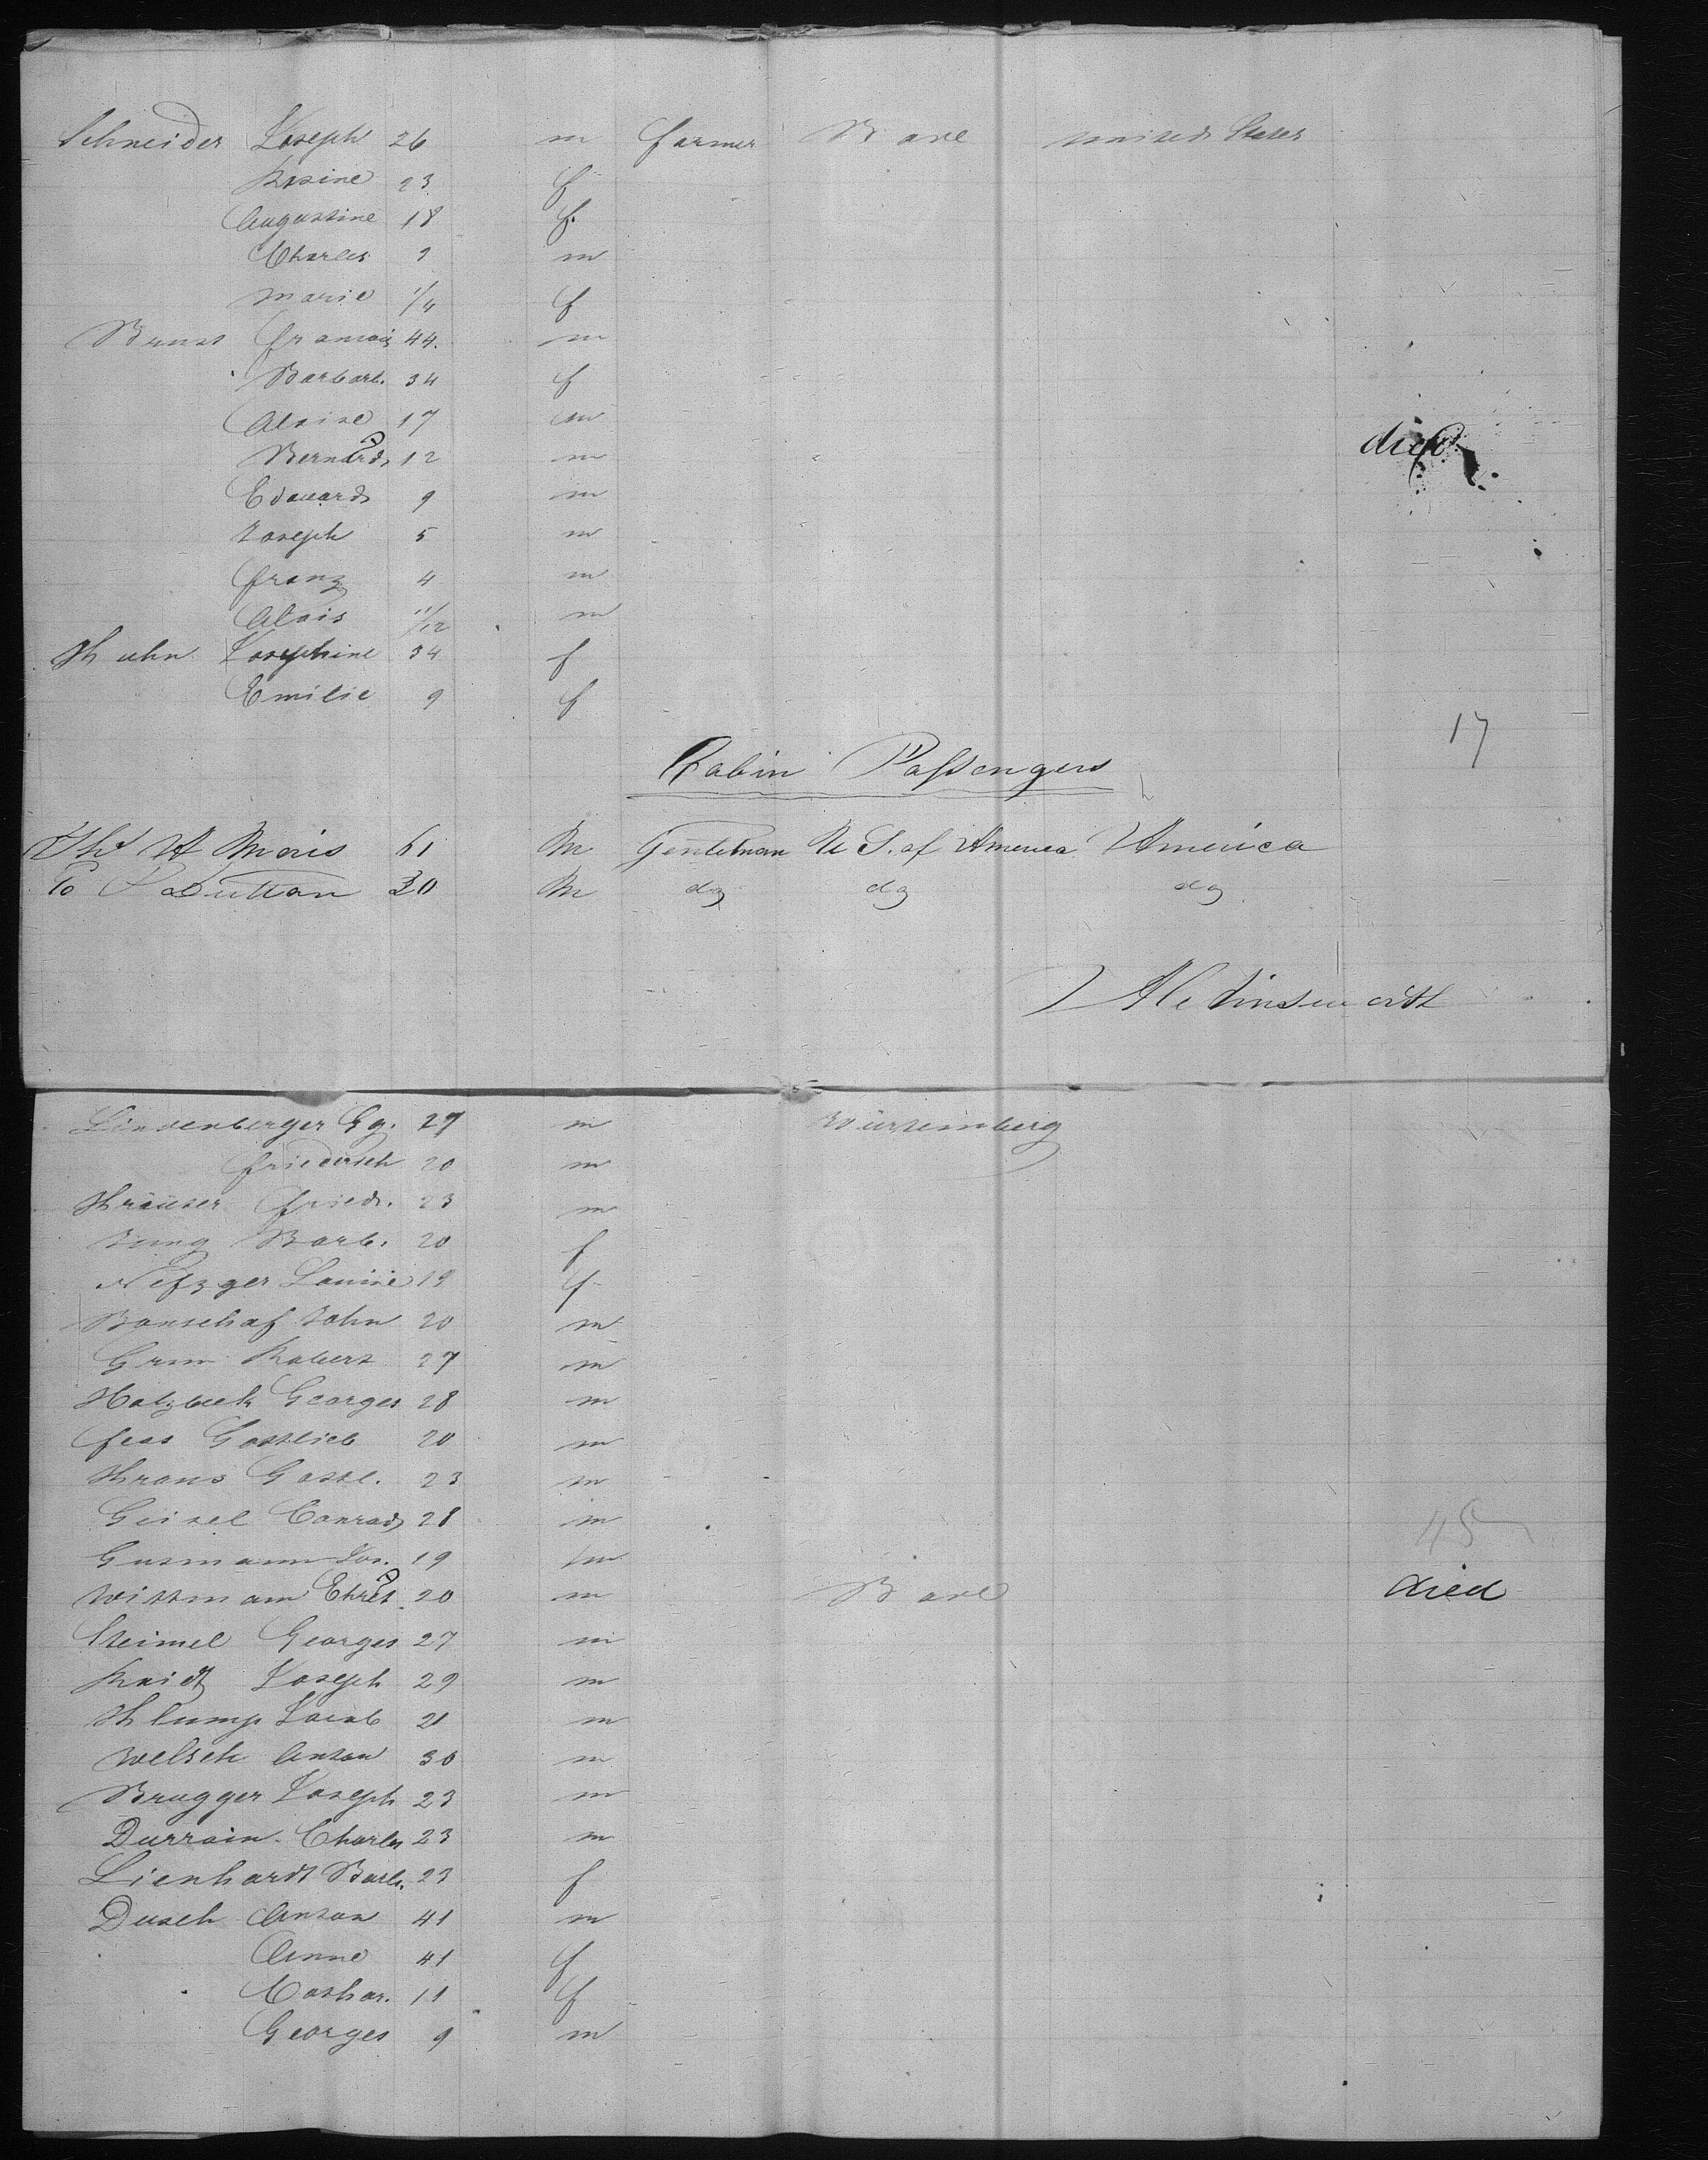 Schneider Joseph 26 m farmer Bade united States
Rosine 23 f
Augustine 18 f.
Charles 9 m
Marie 1/4 f
Brust francois 44. m
Barbarb. 34 f
Aloise 17 m
Bernard 12 m died
Edouard 9 m
Joseph 5 m
franz 4 m
Alois 11/12 m
Kuhn Josephine 34 f
Emilie 9 f
17
Cabin Passengers
A Moris 61 M Gentelman U S. of America America
Dutton 30 M do do do
Lindenberger Gg. 27 m Würtemberg
friederich 20 m
Kräuser friedr. 23 m
Jung Barb. 20 f
Nefzger Louise 19 f
Banschaf John 20 m
Grun Robert 27 m
Holzbuck Georges 28 m
fess Gottlieb 20 m
Kraus Gottl. 23 m
Geisel Conrad 28 m
45
Gusmann Jos. 19 m
Wittmann Ehret 20 m Bade died
Steimel Georges 27 m
Joseph 29 m
Klump Jacob 21 m
Welsch Anton 30 m
Brugger Joseph 23 m
Durrain Charles 23 m
Lienhardt Barb. 23 f
Dusch Anton 41 m
Anne 41 f
Cathar. 11 f
Georges 9 m